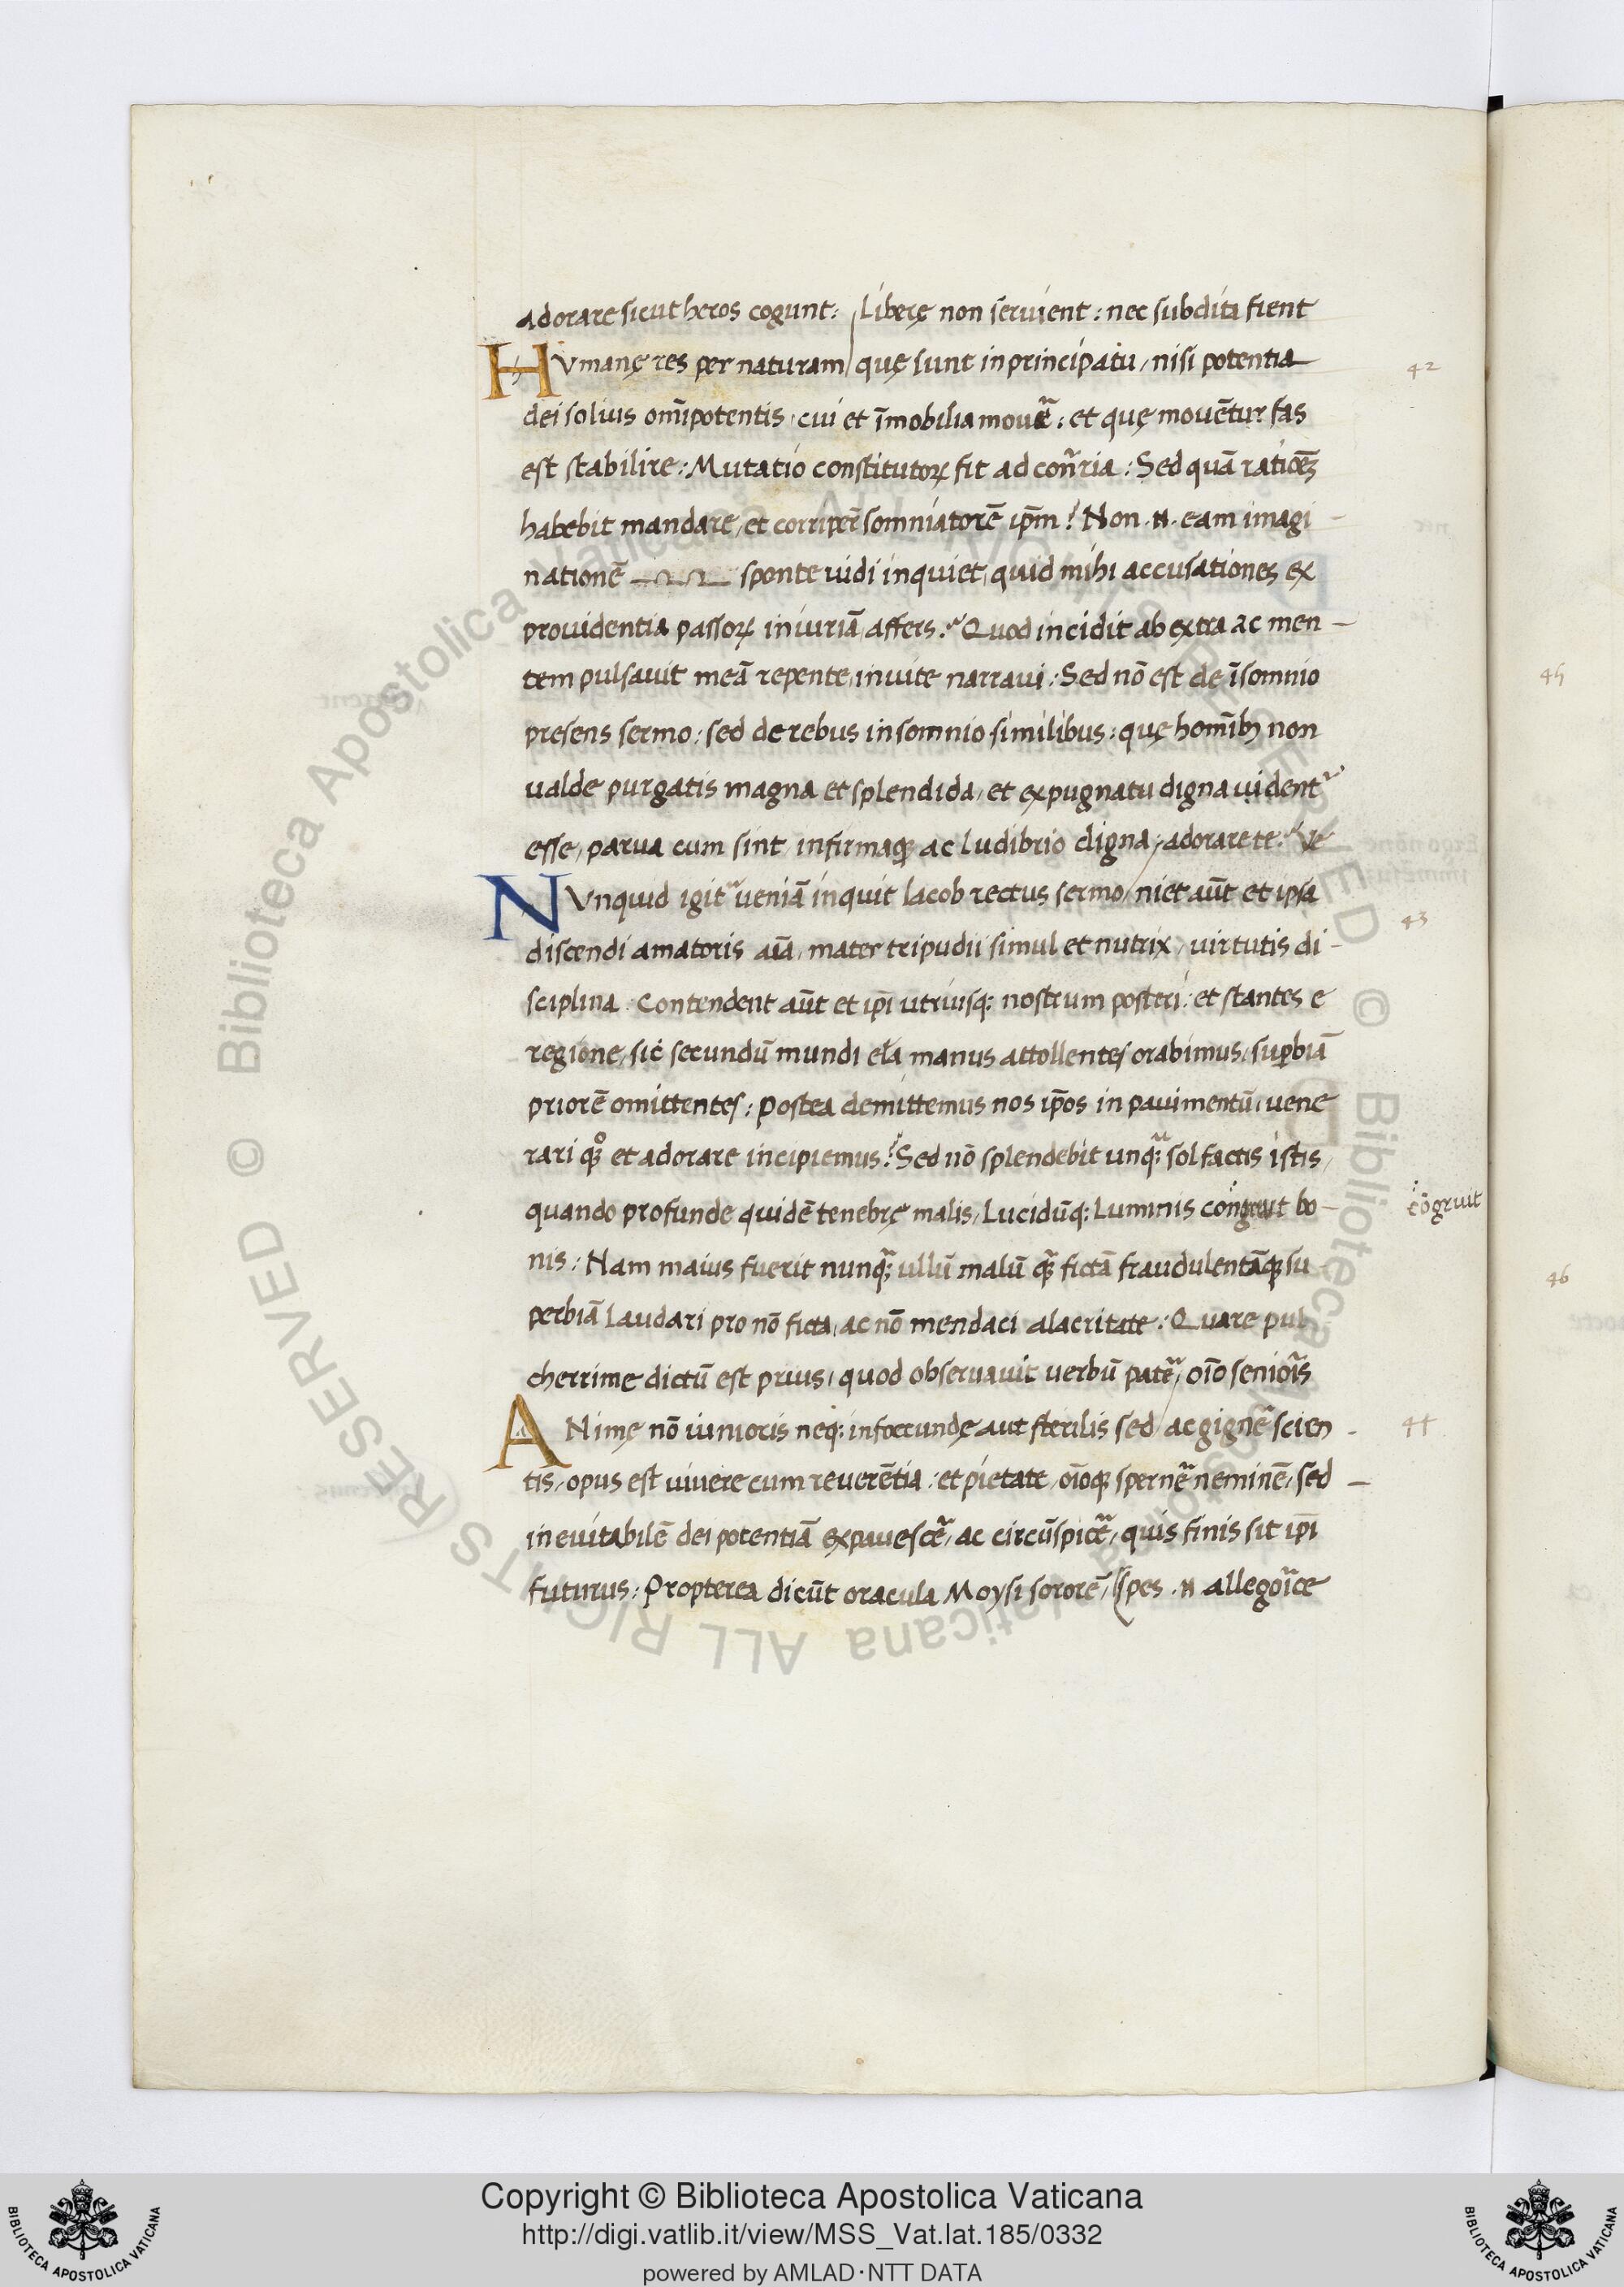 adorare sicut heros cogunt: Liberę non seruient: nec subditi fient
HVmanę res per naturam quę sunt in principatu, nisi potentia
42
dei solius om̃ipotentis, cui et ĩmobilia mouẽ: et quę mouẽtur fas
est stabilire: Mutatio constitutoꝝ fit ad cont̃ria: Sed quã ratiõeꝫ
habebit mandare, et corriper̃ somniatorẽ ip̃m? Non .n. eam imagi-
nationẽ sponte uidi inquiet, quid mihi accusationes ex
prouidentia passoꝝ iniuriã affers? Quod incidit ab extra ac men-
tem pulsauit meã repente, inuite narraui: Sed nõ est de ĩsomnio
45
presens sermo: sed de rebus insomnio similibus: quę homĩbꝫ non
ualde purgatis magna et splendida, et expugnatu digna uident᷑
esse, parua cum sint, infirmaqꝫ ac ludibrio digna, adorare te? Ve
NVnquid igit᷑ ueniã inquit Iacob rectus sermo, niet aũt et ipsa
43
discendi amatoris aĩa, mater tripudii simul et nutrix, uirtutis di-
sciplina. Contendent aũt et ip̃i utriusqꝫ nostrum posteri: et stantes e
regione, sic secundũ mundi el̃a manus attollentes orabimus, sup̱biã
priorẽ omittentes: postea demittemus nos ip̃os in pauimentũ, uene
rari qꝫ et adorare incipiemus? Sed nõ splendebit unqꝫ̃ sol factis istis,
quando profunde quidẽ tenebrę malis, Lucidũqꝫ Luminis congruit bo-
cõgruit
nis: Nam maius fuerit nunqꝫ̃ ullũ malũ qꝫ̃ fictã fraudulentãqꝫ su
46
perbiã laudari pro nõ ficta, ac nõ mendaci alacritate: Quare pul
cherrime dictũ est prius, quod obseruauit uerbũ patẽ, oĩo senioĩs
ANimę nõ iunioris neqꝫ infoecundę aut sterilis sed ac gignẽ scien-
44
tis, opus est uiuere cum reuerẽtia: et pietate, oĩoqꝫ spernẽ neminẽ, sed-
ineuitabilẽ dei potentiã expauescẽ, ac circũspicẽ, quis finis sit ip̃i
futurus: Propterea dicũt oracula Moysi sororẽ, spes .n. allegoĩce
Copyright © Biblioteca Apostolica Vaticana
http://digi.vatlib.it/view/MSS_Vat.lat.185/0332
powered by AMLAD·NTT DATA